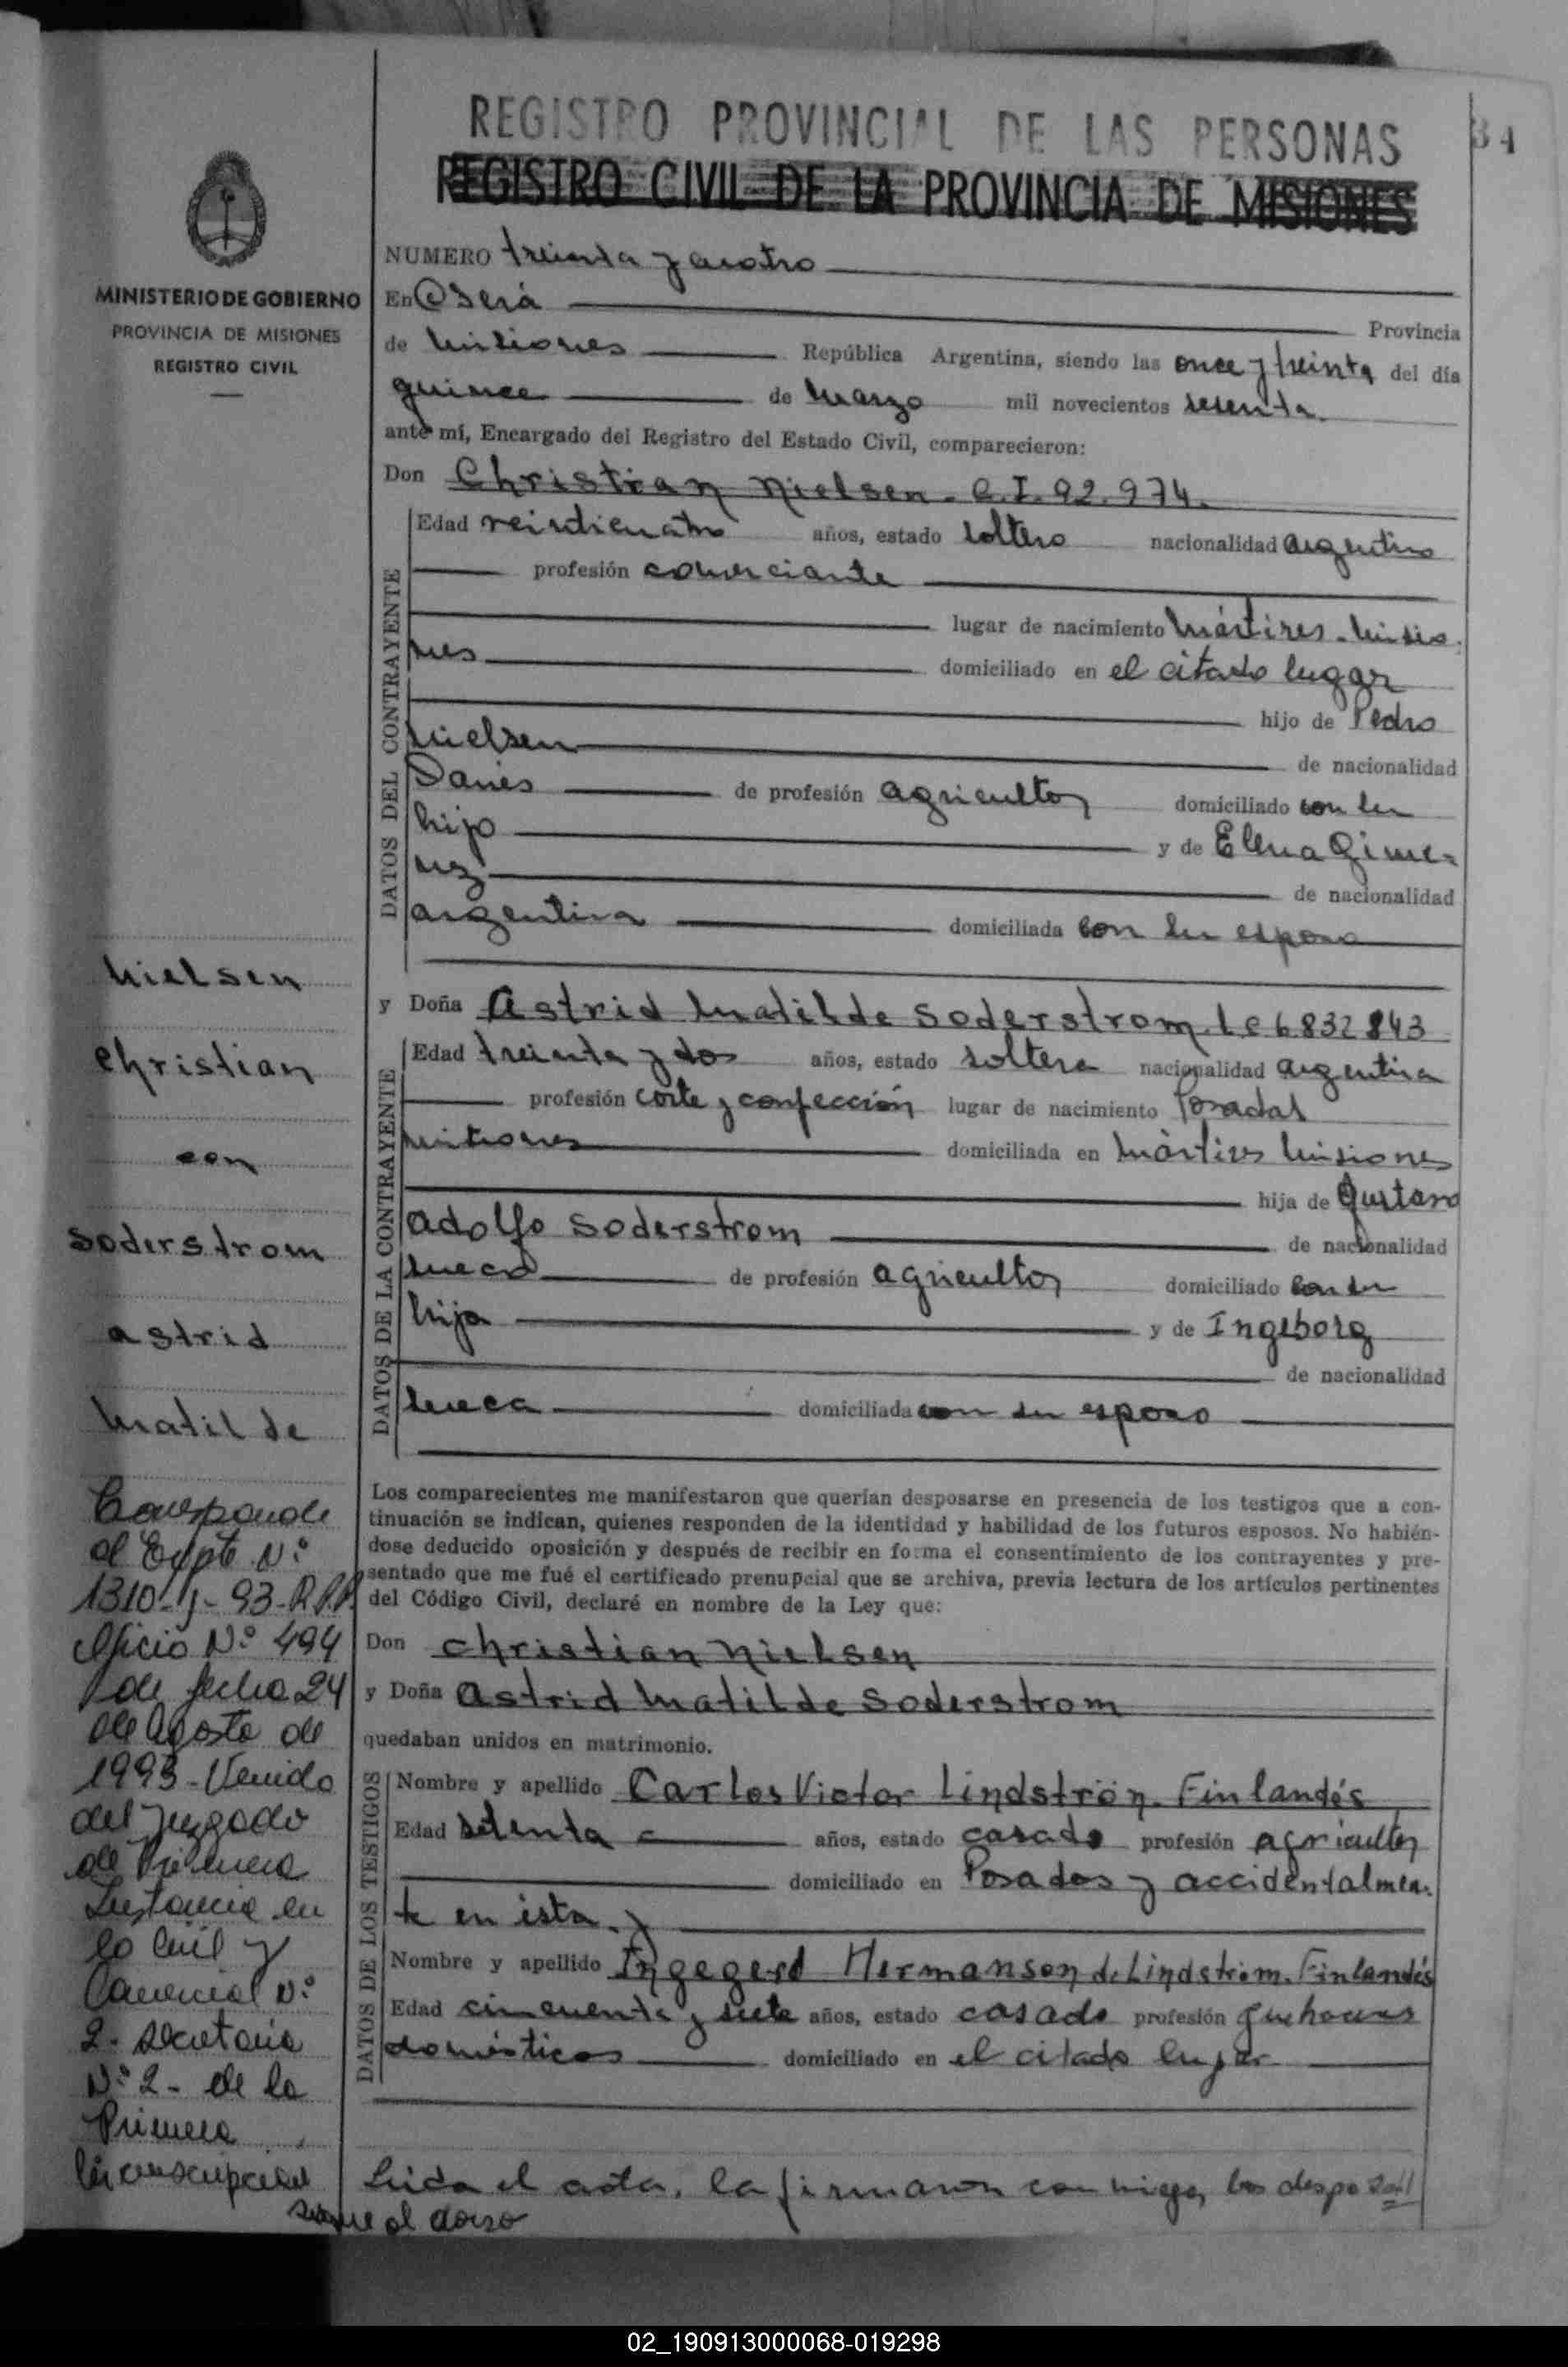 REGISTRO PROVINCIAL DE LAS PERSONAS
34
REGISTRO CIVIL DE LA PROVINCIA DE MISIONES
MINISTERIO DE GOBIERNO
PROVINCIA DE MISIONES
REGISTRO CIVIL
NUMERO treinta y cuatro
En Oberá Provincia
de Misiones República Argentina, siendo las once y treinta del día
quince de Marzo mil novecientos sesenta
ante mí, Encargado del Registro del Estado Civil, comparecieron:
Don Christian Nielsen - C.I. 92.974.
DATOS DEL CONTRAYENTE
Edad veinticuatro años, estado soltero nacionalidad argentino
profesión comerciante
lugar de nacimiento Mártires - Misio
nes domiciliado en el citado lugar
hijo de Pedro
Nielsen de nacionalidad
Danés de profesión agricultor domiciliado con su
hijo y de Elena Gime-
nez de nacionalidad
argentina domiciliada con su esposo
y Doña Astrid Matilde Soderstrom. L C 6.832 843
DATOS DE LA CONTRAYENTE
Edad treinta y dos años, estado soltera nacionalidad argentina
profesión corte y confección lugar de nacimiento Posadas
Misiones domiciliada en Mártires Misiones
hija de Gustavo
Adolfo Soderstrom de nacionalidad
sueco de profesión agricultor domiciliado con su
hija y de Ingeborg
de nacionalidad
sueca domiciliada con su esposo
Los comparecientes me manifestaron que querían desposarse en presencia de los testigos que a con-
tinuación se indican, quienes responden de la identidad y habilidad de los futuros esposos. No habién-
dose deducido oposición y después de recibir en forma el consentimiento de los contrayentes y pre-
sentado que me fué el certificado prenupcial que se archiva, previa lectura de los artículos pertinentes
del Código Civil, declaré en nombre de la Ley que:
Don Christian Nielsen
y Doña Astrid Matilde Soderstrom
quedaban unidos en matrimonio.
DATOS DE LOS TESTIGOS
Nombre y apellido Carlos Victor Lindströn. Finlandés
Edad setenta años, estado casado profesión agricultor
domiciliado en Posadas y accidentalmen-
te en ésta. y
Nombre y apellido Ingegerd Hermanson de Lindström. Finlandés
Edad cincuenta y siete años, estado casado profesión quehaceres
domésticos domiciliado en el citado lugar
Leída el acta, la firmaron conmigo, los desposad
Nielsen
Christian
con
Soderstrom
Astrid
Matilde
Corresponde
al Expte. Nº
1310- -93-R.P.P.
Oficio Nº 494
de fecha 24
de Agosto de
1993 - Venido
del Juzgado
de Primera
Instancia en
lo Civil y
Comercial Nº
2- Secretaría
Nº 2- de la
Primera
Circunscripción
sigue al dorso
02_190913000068-019298